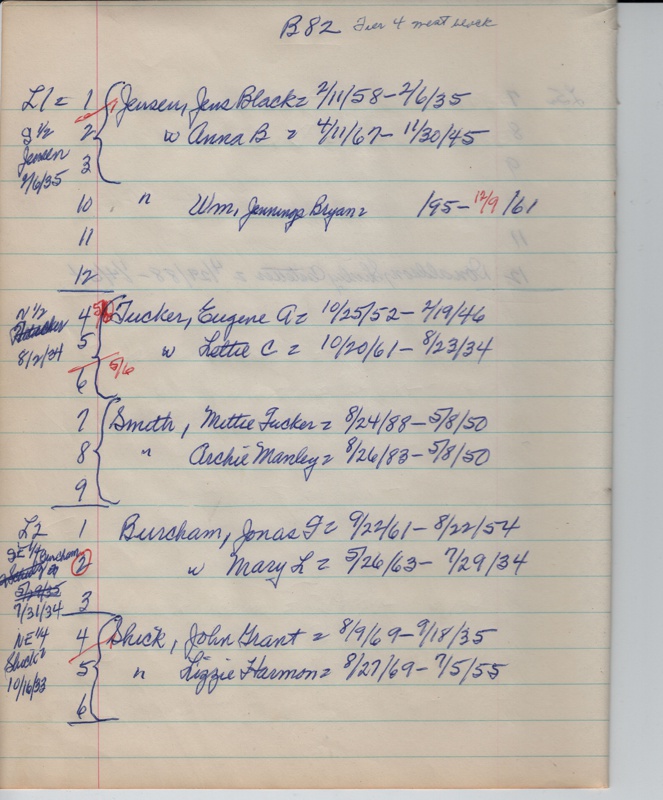 B82 Tier 4 west block
L1 = 1 Jensen, Jens Black = 2/11/58 - 2/6/35
S 1/2 2 w Anna B = 4/11/67 - 11/30/45
Jensen 3
2/6/35
10 " Wm, Jennings Bryan = /95 - 12/9/61
11
12
N 1/2 4 5/8 Tucker, Eugene A = 10/25/52 - 2/19/46
5 w Lettie C = 10/20/61 - 8/23/34
8/2/34
6 5/6
7 Smith, Mettie Tucker = 8/24/88 - 5/8/50
8 " Archie Manley = 8/26/83 - 5/8/50
9
L2 1 Burcham, Jonas F = 9/22/61 - 8/22/54
SE 1/4 Burcham 2 w Mary L = 5/26/63 - 7/29/34
5/29/35
3
7/31/34
NE 1/4 4 Shick, John Grant = 8/9/69 - 9/18/35
Shick 5 " Lizzie Harmon = 8/27/69 - 7/5/55
10/16/33
6